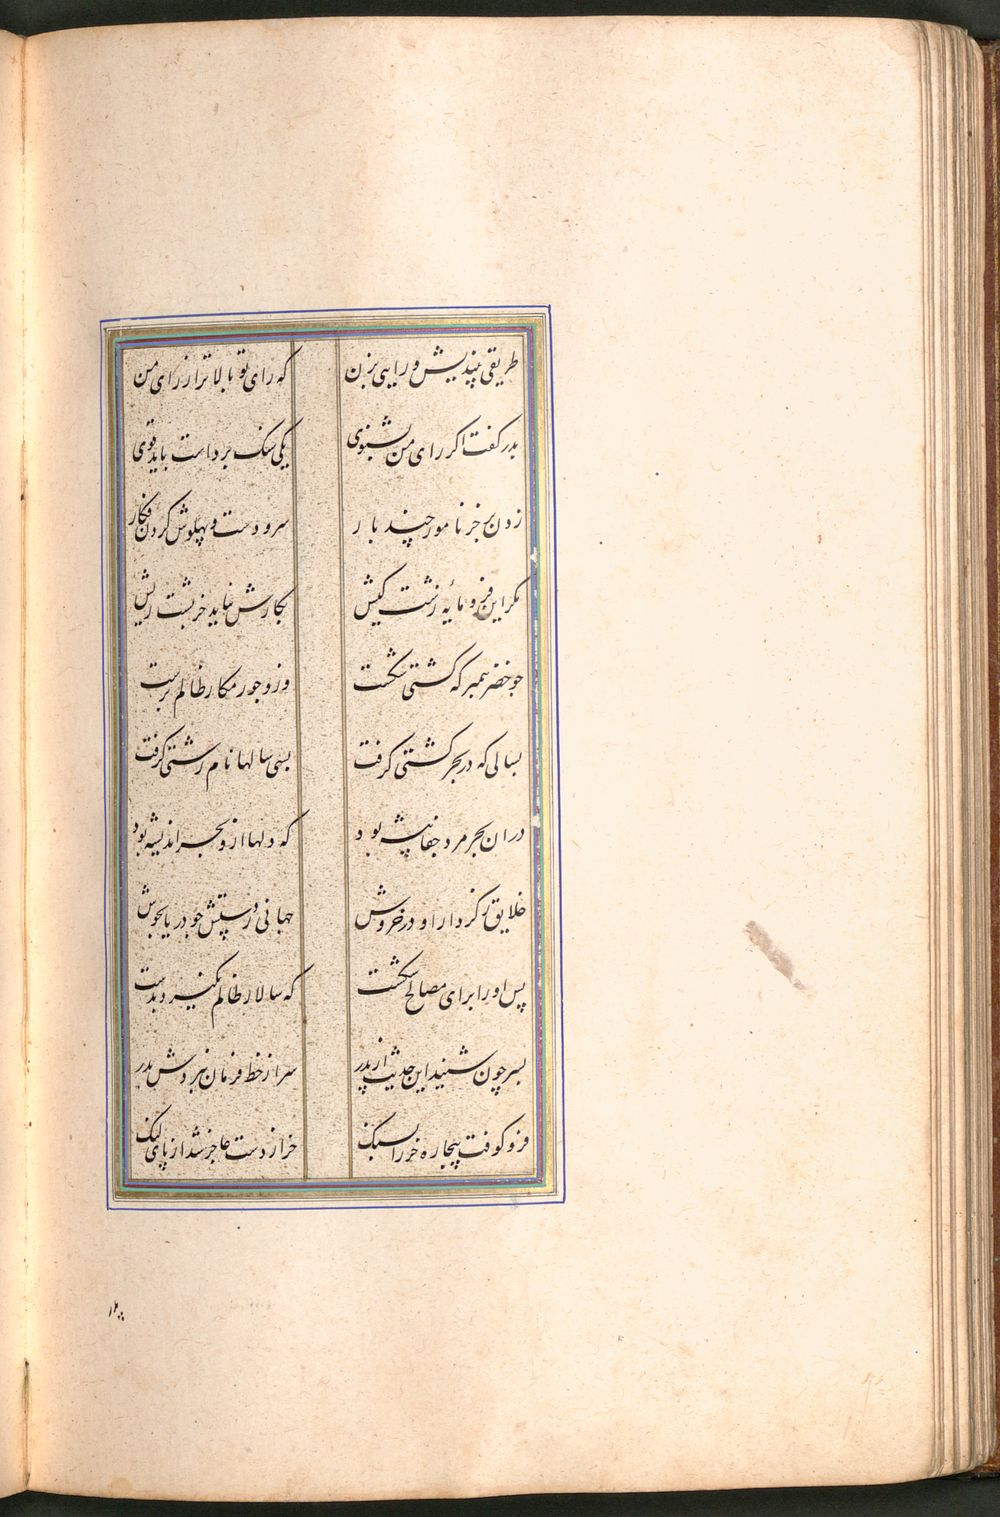 طریقی بیندیش و رایی بزن که رای تو بالاتر از رای من
پدر گفت اکر رای من بشنوی یکی سنک برداشت باید قوی
زدن بر خر نامور چند بار سر و دست و پهلوش کردن فکار
مکر این فرومایهٔ زشت کیش بکارش نیاید خر پشت ریش
جو خضر پیمبر که کشتی شکست وزو جور مکار ظالم برست
بسالی که در بحر کشتی کرفت بسی سالها نام زشتی کرفت
دران بحر مرد جفا پیشه بود که دلها ازو بحر اندیشه بود
خلایق ز کردار او در خروش جهانی ز دستش جو دریا بجوش
پس اورا برای مصالح شکست که سالار ظالم نکیرد بدست
پسر چون شنید این حدیث از پدر سر از خط فرمان نبردش بدر
فرو کوفت بیچاره خر را بسنک خر از دست عاجز شد از پای لنک